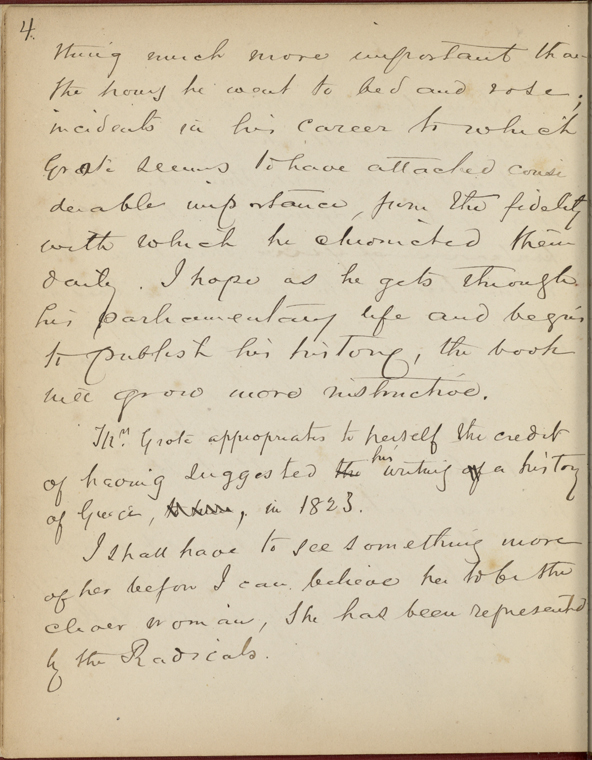 4.
thing much more important than
the hours he went to bed and rose;
incidents in his career to which
Grote seems to have attached consi
derable importance, from the fidelity
with which he chronicled them
daily. I hope as he gets through
his parliamentary life and begins
to publish his history, the book
will grow more instructive.
Mrs. Grote appropriates to herself the credit
of having suggested the his writing of a history
of Greece, in 1823.
I shall have to see something more
of her before I can believe her to be the
clever woman, she has been represented
by the Radicals.